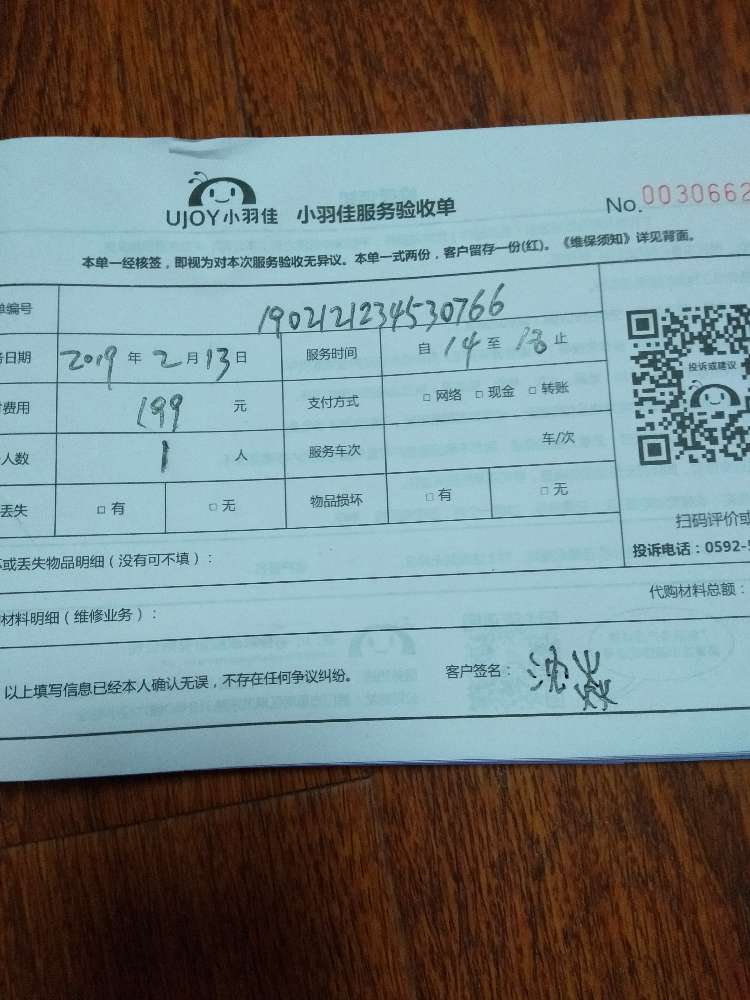 UJOY小羽佳 小羽佳服务验收单 No.0030662
本单一经核签，即视为对本次服务验收无异议。本单一式两份，客户留存一份(红)。《维保须知》详见背面。
单编号 190212123453​0766
日期 2019 年 2 月 13 日 服务时间 自 14 至 18 止
费用 199 元 支付方式 □ 网络 □ 现金 □ 转账
人数 1 人 服务车次 车/次
丢失 □ 有 □ 无 物品损坏 □ 有 □ 无
投诉或建议
扫码评价或
投诉电话：0592-5
或丢失物品明细（没有可不填）：
材料明细（维修业务）： 代购材料总额：
以上填写信息已经本人确认无误，不存在任何争议纠纷。 客户签名：沈